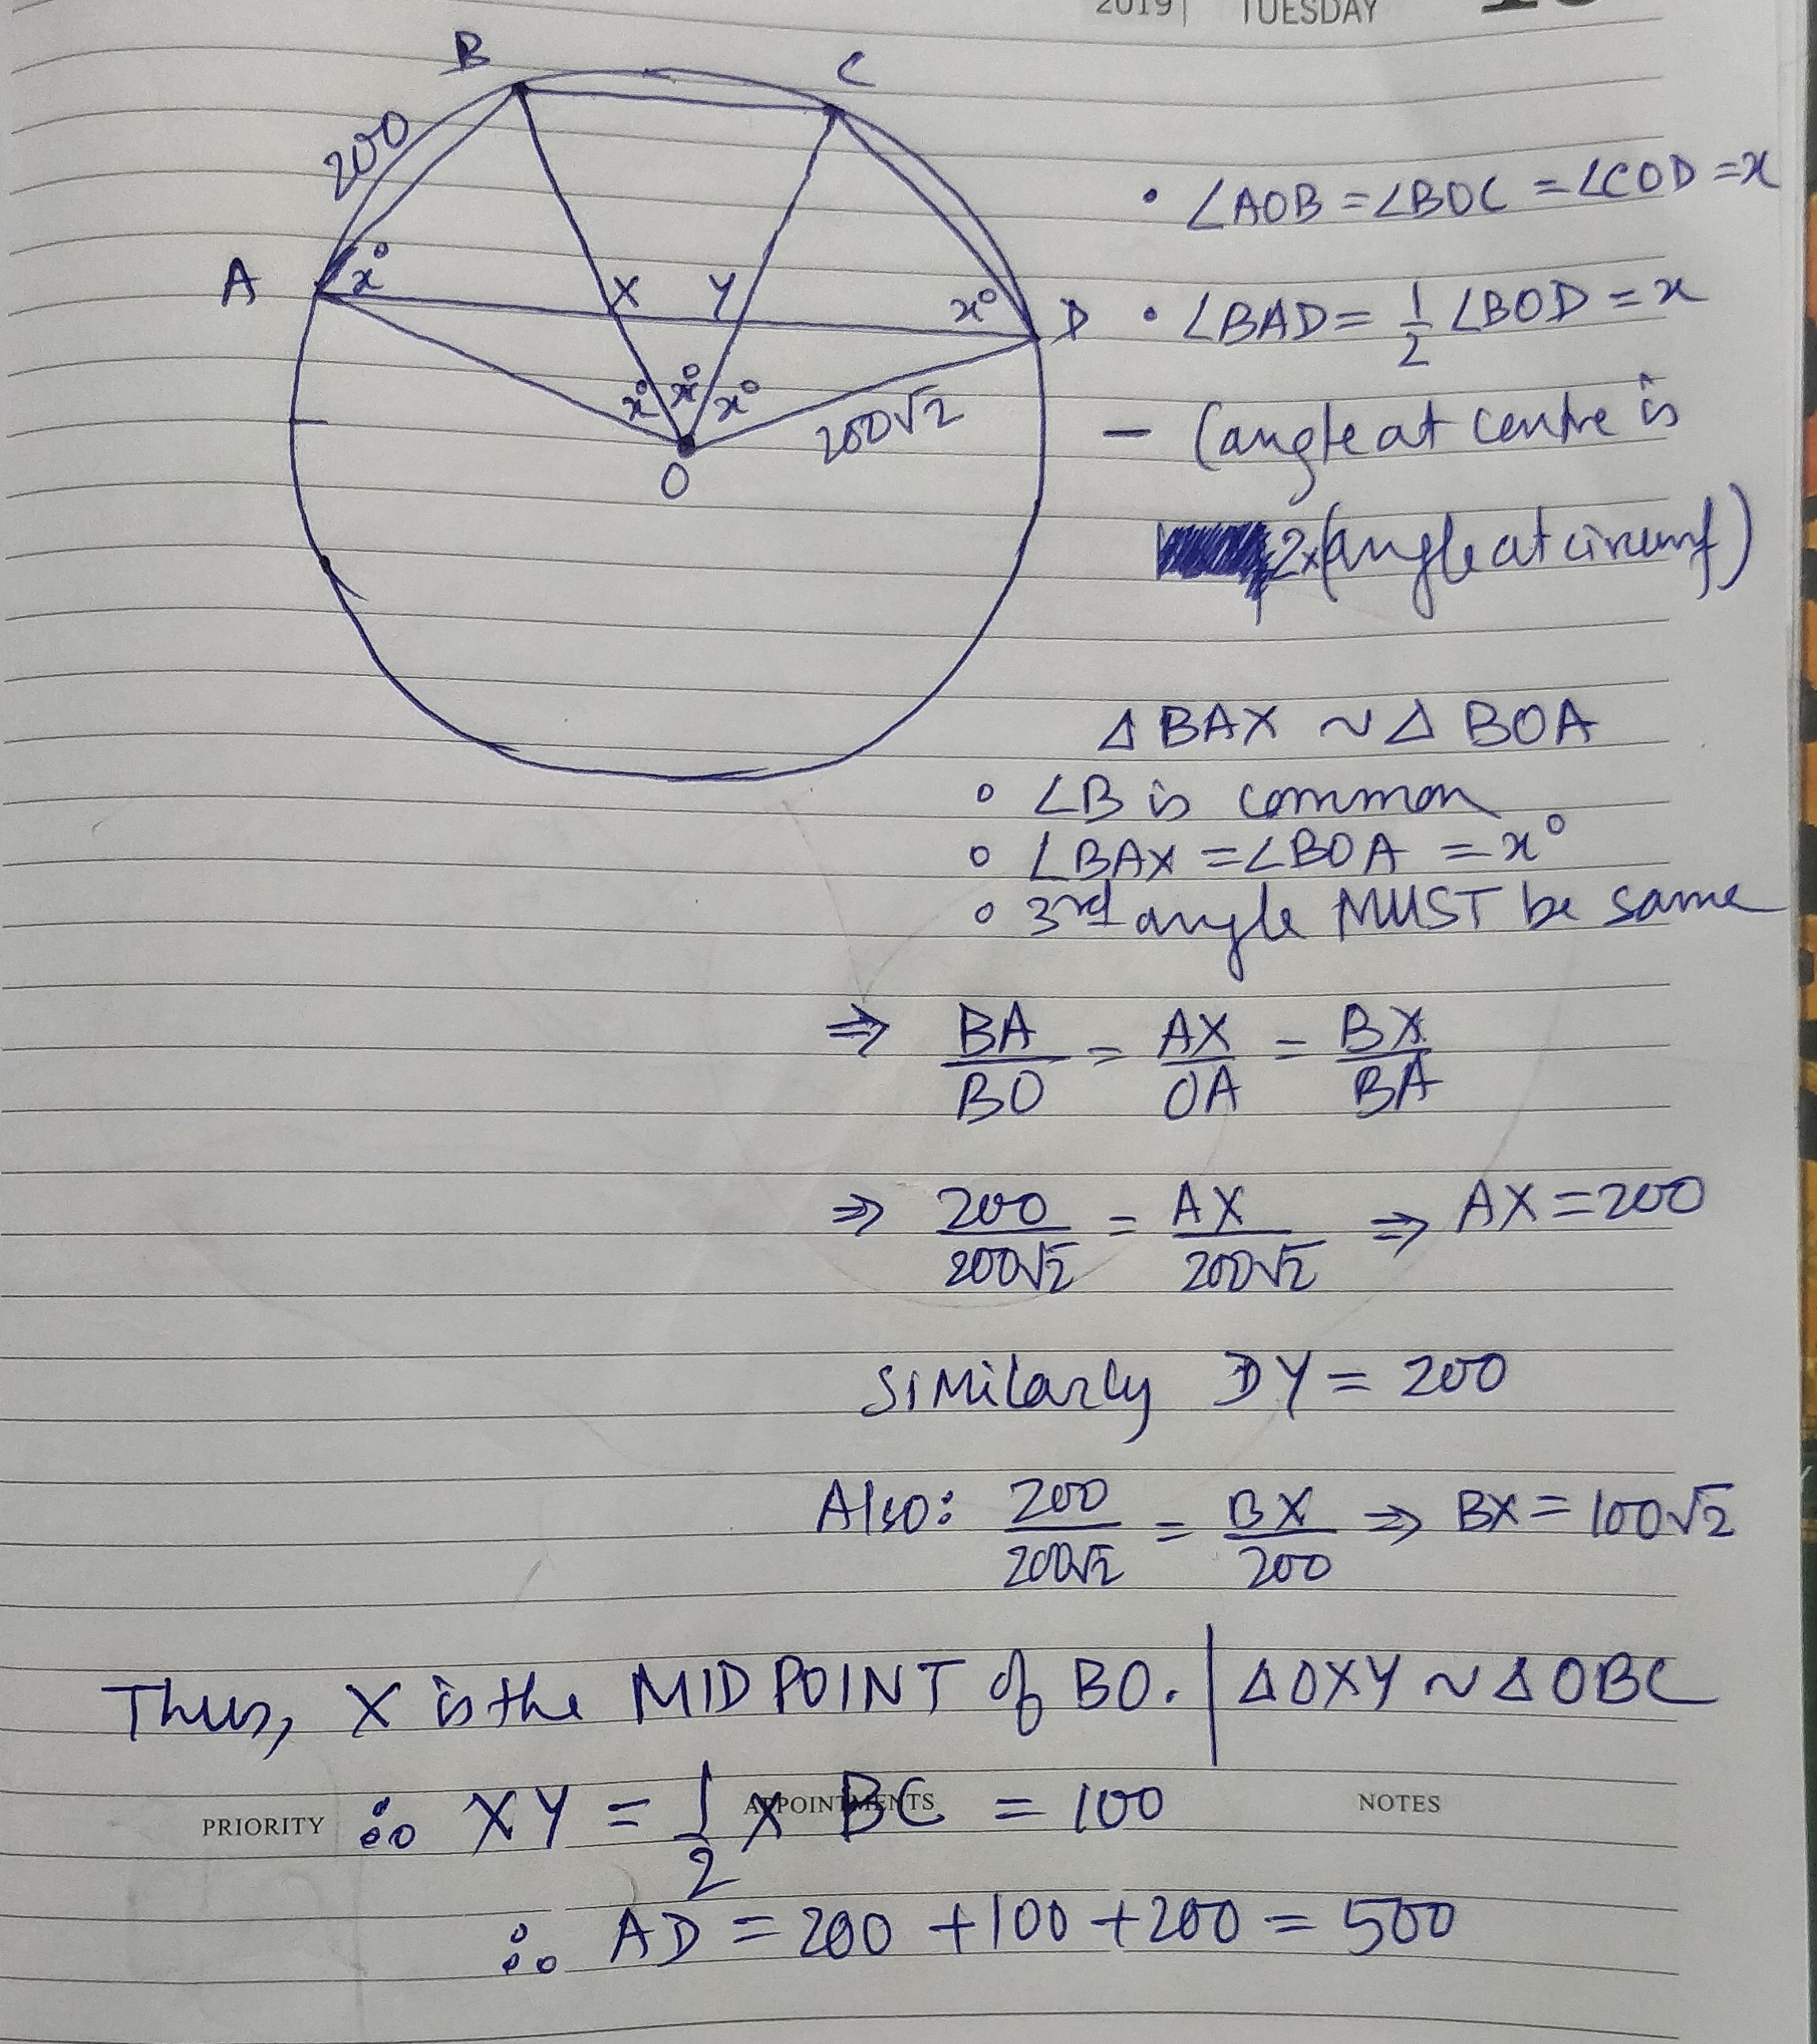 2019 | TUESDAY
B
C
200
A
x°
X
Y
x°
D
x°
x°
x°
200√2
O
• ∠AOB = ∠BOC = ∠COD = x
• ∠BAD = 1/2 ∠BOD = x
– (angle at centre is
2x(angle at circumf)
Δ BAX ~ Δ BOA
∘ ∠B is common
∘ ∠BAX = ∠BOA = x°
∘ 3rd angle MUST be same
⇒ BA/BO = AX/OA = BX/BA
⇒ 200/200√2 = AX/200√2 ⇒ AX = 200
Similarly DY = 200
Also: 200/200√2 = BX/200 ⇒ BX = 100√2
Thus, X is the MIDPOINT of BO. | Δ OXY ~ Δ OBC
PRIORITY APPOINTMENTS NOTES
∴ XY = 1/2 x BC = 100
∴ AD = 200 + 100 + 200 = 500